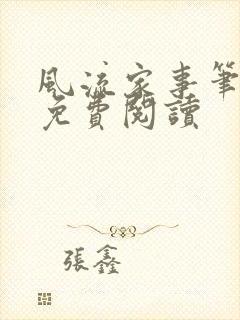 風流家事筆
免費閱讀
張鑫